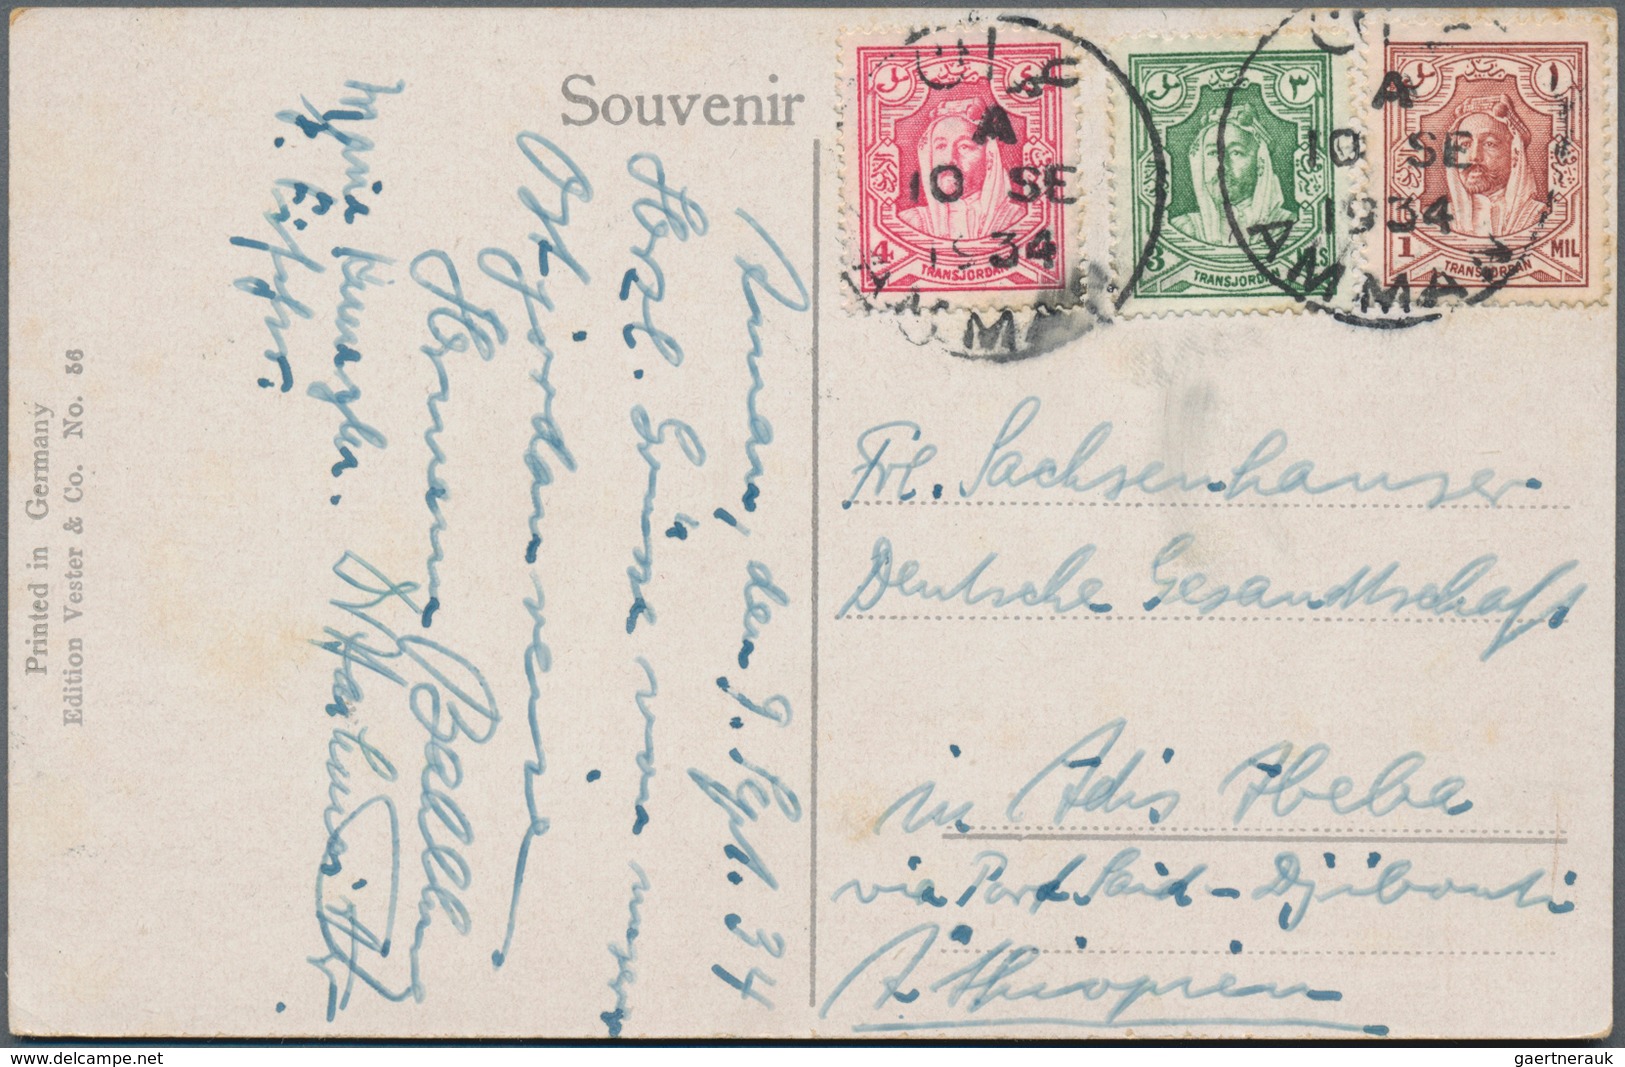 Souvenir
Amman, den 9. Sept. 34
Herzl. Grüsse von unserer
Ostjordanreise
Hermann
Printed in Germany
Edition Vester & Co. No. 56
٤
4
TRANSJORDAN
٣
3
TRANSJORDAN
١
1 MIL
TRANSJORDAN
A
10 SE
1934
AMMAN
A
10 SE
1934
AMMAN
Frl. Sachsenhauser
Deutsche Gesandtschaft
in Adis Abeba
via Port Said - Djibouti
Äthiopien
www.delcampe.net
gaertnerauk